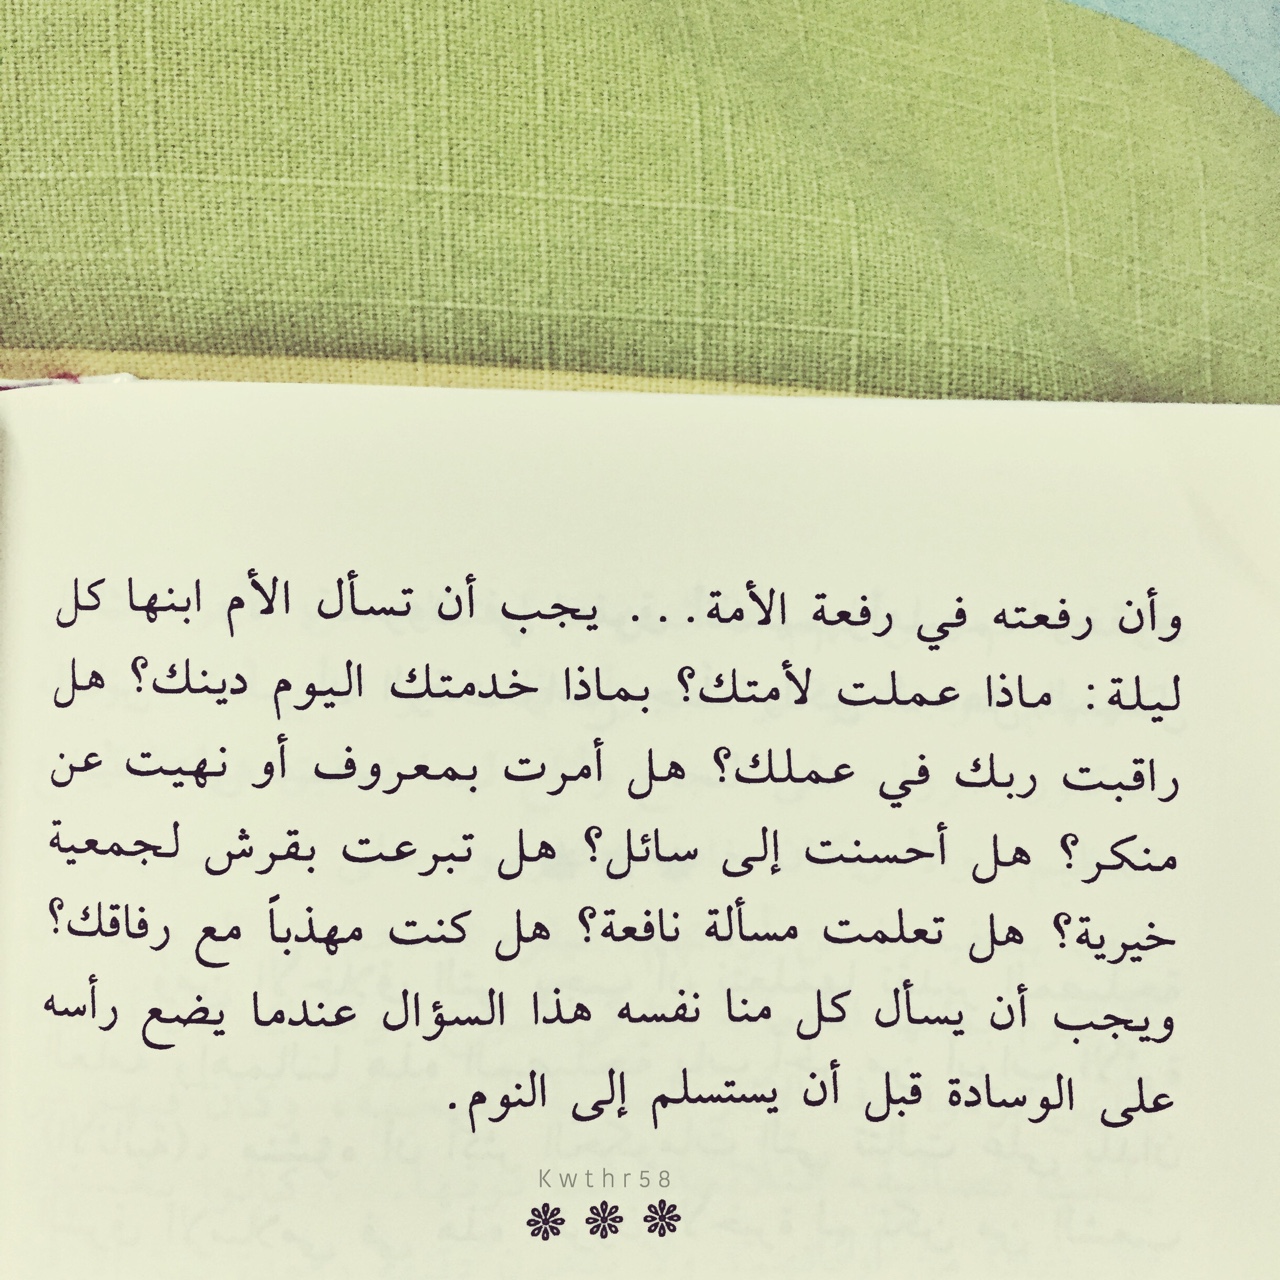 وأن رفعته في رفعة الأمة... يجب أن تسأل الأم ابنها كل
ليلة: ماذا عملت لأمتك؟ بماذا خدمتك اليوم دينك؟ هل
راقبت ربك في عملك؟ هل أمرت بمعروف أو نهيت عن
منكر؟ هل أحسنت إلى سائل؟ هل تبرعت بقرش لجمعية
خيرية؟ هل تعلمت مسألة نافعة؟ هل كنت مهذباً مع رفاقك؟
ويجب أن يسأل كل منا نفسه هذا السؤال عندما يضع رأسه
على الوسادة قبل أن يستسلم إلى النوم.
Kwthr58